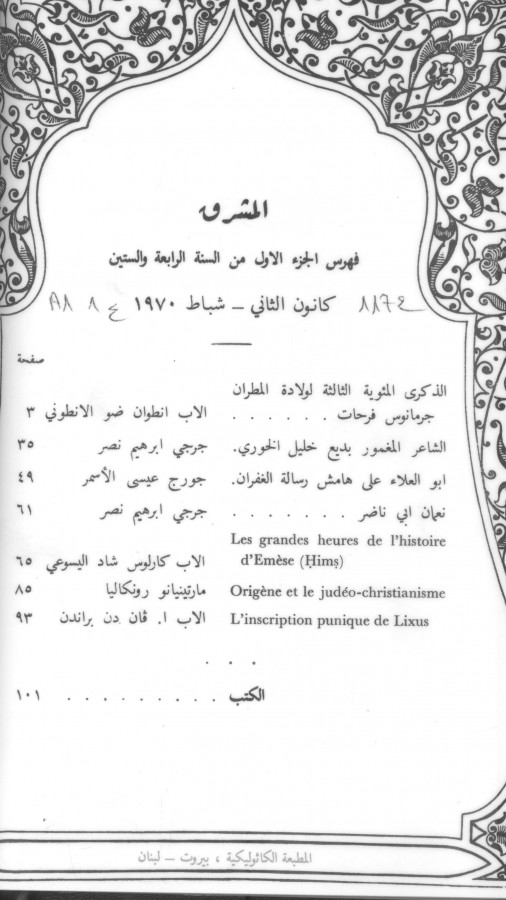 المشرق
فهرس الجزء الاول من السنة الرابعة والستين
كانون الثاني – شباط ١٩٧٠
صفحة
الذكرى المئوية الثالثة لولادة المطران
جرمانوس فرحات . . . . . . الاب انطوان ضو الانطوني ٣
الشاعر المغمور بديع خليل الخوري. جرجي ابرهيم نصر ٣٥
ابو العلاء على هامش رسالة الغفران. جورج عيسى الأسمر ٤٩
نعمان ابي ناضر . . . . . . . جرجي ابرهيم نصر ٦١
Les grandes heures de l'histoire
d'Emèse (Ḥimṣ) الاب كارلوس شاد اليسوعي ٦٥
Origène et le judéo-christianisme مارتينيانو رونكاليا ٨٥
L'inscription punique de Lixus الاب ا. ڤان دن براندن ٩٣
. . .
الكتب . . . . . . . . . ١٠١
المطبعة الكاثوليكية ، بيروت – لبنان